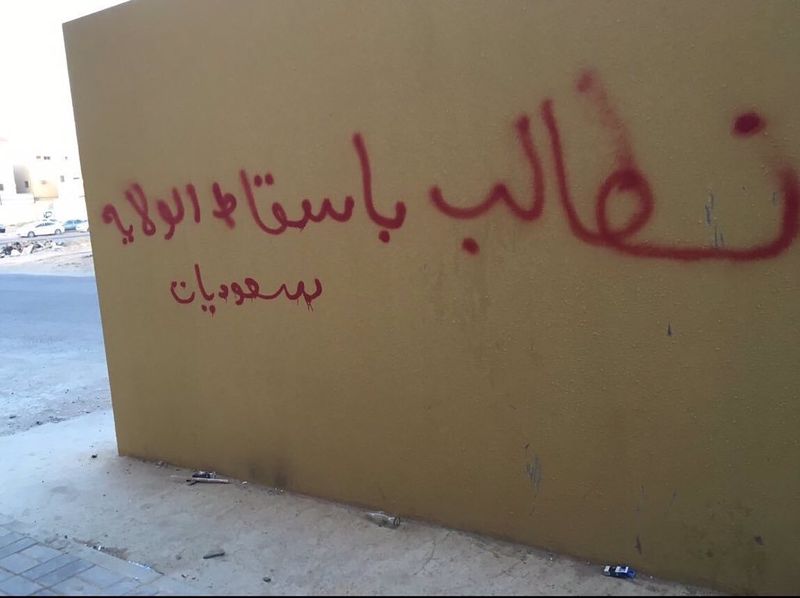 نطالب باسقاط الولايه
سعوديات